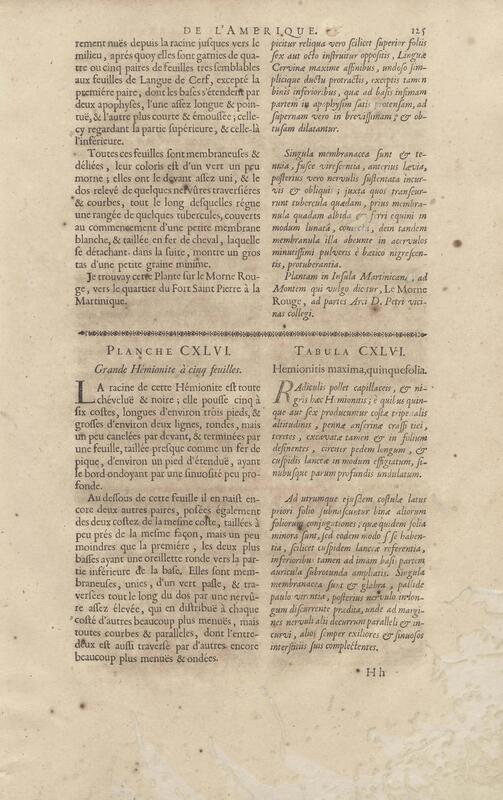 DE L'AMERIQUE. 125
rement nuës depuis la racine jusques vers le
milieu, aprés quoy elles sont garnies de qua-
tre ou cinq paires de feuilles tres semblables
aux feuilles de Langue de Cerf, excepté la
premiére paire, dont les bases s'étendent par
deux apophyses, l'une assez longue & poin-
tuë, & l'autre plus courte & émoussée; celle-
cy regardant la partie supérieure, & celle-là
l'inferieure.
Toutes ces feuilles sont membraneuses &
déliées, leur coloris est d'un vert un peu
morne; elles ont le devant assez uni, & le
dos relevé de quelques nervûres traversiéres
& courbes, tout le long desquelles régne
une rangée de quelques tubercules, couverts
au commencement d'une petite membrane
blanche, & taillée en fer de cheval, laquelle
se détachant dans la suite, montre un gros
tas d'une petite graine minime.
Je trouvay cette Plante sur le Morne Rou-
ge, vers le quartier du Fort Saint Pierre à la
Martinique.
picitur reliqua vero scilicet superior foliis
sex aut octo instruitur oppositis, Linguæ
Cervinæ maxime affinibus, undoso sim-
plicique ductu protractis, exceptis tamen
binis inferioribus, quæ ad basis infimam
partem in apophysim satis protensam, ad
supernam vero in brevissimam, & ob-
tusam dilatantur.
Singula membranacea sunt & te-
nuia, fusce virescentia, anterius lævia,
posterius vero nervulis sustentata incur-
vis & obliquis; juxta quos transcur-
runt tubercula quædam, prius membra-
nula quadam albida & ferri equini in
modum lunatâ, contecta, dein tandem
membranula illa abeunte in acervulos
minutissimi pulveris è bætico nigrescen-
tis, protuberantia.
Plantam in Insula Martinicana, ad
Montem qui vulgo dicitur, Le Morne
Rouge, ad partes Arci D. Petri vici-
nas collegi.
PLANCHE CXLVI.
Grande Hémionite à cinq feuilles.
LA racine de cette Hémionite est toute
chéveluë & noire; elle pousse cinq à
six costes, longues d'environ trois pieds, &
grosses d'environ deux lignes, rondes, mais
un peu canelées par devant, & terminées par
une feuille, taillée presque comme un fer de
pique, d'environ un pied d'étenduë, ayant
le bord ondoyant par une sinuosité peu pro-
fonde.
Au dessous de cette feuille il en naist en-
core deux autres paires, posées également
des deux costez de la mesme coste, taillées à
peu prés de la mesme façon, mais un peu
moindres que la premiére, les deux plus
basses ayant une oreillette ronde vers la par-
tie inférieure de la base. Elles sont mem-
braneuses, unies, d'un vert passe, & tra-
versées tout le long du dos par une nervû-
re assez élevée, qui en distribuë à chaque
costé d'autres beaucoup plus menuës, mais
toutes courbes & paralleles, dont l'entre-
deux est aussi traversé par d'autres encore
beaucoup plus menuës & ondées.
TABULA CXLVI.
Hemionitis maxima, quinquefolia.
RAdiculis pollet capillaceis, & ni-
gris hæc Hemionitis; è quibus quin-
que aut sex producuntur costæ tripedalis
altitudinis, pennæ anserinæ crassitiei,
teretes, excavatæ tamen & in folium
desinentes, circiter pedem longum, &
cuspidis lanceæ in modum effigiatum, si-
nubusque parum profundis undulatum.
Ad utrumque ejusdem costulæ latus
priori folio subnascuntur binæ aliorum
foliorum conjugationes; quæ quidem folia
minora sunt, sed eodem modo sese haben-
tia, scilicet cuspidem lanceæ referentia,
inferioribus tamen ad imam basis partem
auricula subrotunda ampliatis. Singula
membranacea sunt & glabra, pallide
paulo virentia, posterius nervulo in lon-
gum discurrente prædita, unde ad margi-
nes nervuli alii decurrunt paralleli & in-
curvi, alios semper exiliores & sinuosos
interstitiis suis complectentes.
Hh